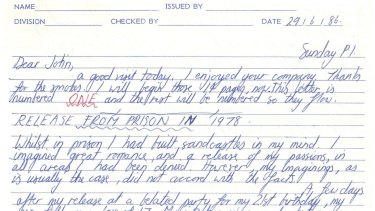 NAME ISSUED BY
DIVISION CHECKED BY DATE 29/6/86.
Sunday P1
Dear John,
a good visit today, I enjoyed your company. Thanks
for the smokes. I will begin those 14 pages, now. This letter is
numbered ONE and the rest will be numbered so they flow.
RELEASE FROM PRISON IN 1978.
Whilst in prison I had built sandcastles in my mind. I
imagined great romance, and a release of my passions, in
all areas I had been denied. However, my imaginings, as
is usually the case, did not accord with the facts.
A few days
after my release at a belated party for my 21st birthday, my